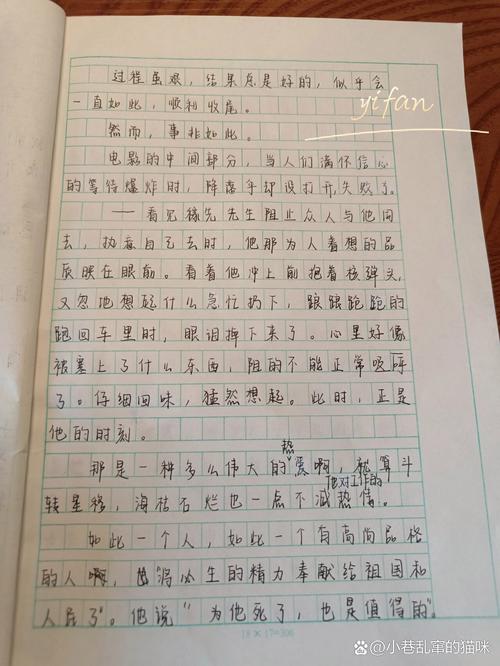 过程虽艰，结果总是好的，似乎会
一直如此，顺利收尾。
yifan
然而，事非如此。
电影的中间部分，当人们满怀信心
的等待爆炸时，降落伞却没打开，失败了。
——看见稼先先生阻止众人与他同
去，执着自己去时，他那为人着想的品
质映在眼前。看着他冲上前抱着核弹头，
又忽地想起什么急忙扔下，踉踉跑跑的
跑回车里时，眼泪掉下来了。心里好像
被塞上了什么东西，阻的不能正常呼
了。仔细回味，猛然想起。此时，正是
他的时刻。
那是一种多么伟大的热爱啊，就算斗
转星移，海枯石烂也一点不减他对工作的热情。
如此一个人，如此一个有高尚品格
的人啊，"将必生的精力奉献给祖国和
人民了"。他说"为他死了，也是值得的"。
18×17=306
@小巷乱窜的猫咪